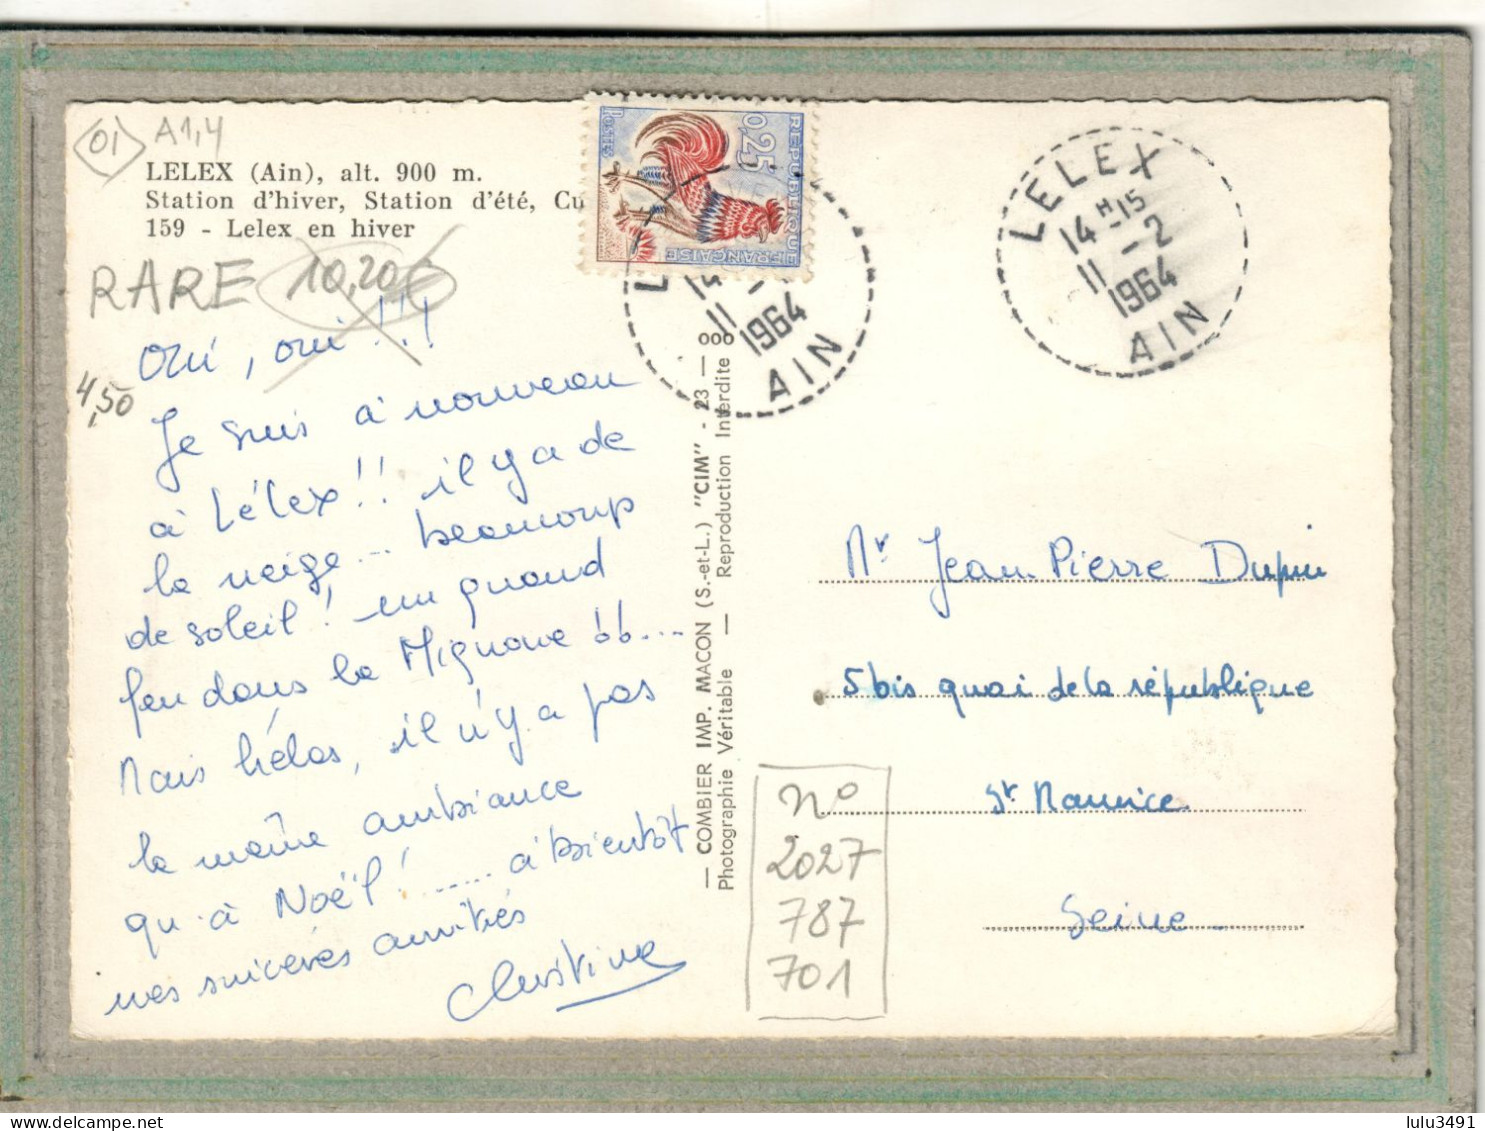 01 A1,4
LELEX (Ain), alt. 900 m.
Station d'hiver, Station d'été, Cu
159 - Lelex en hiver
RARE 10,20€
4,50
oui, oui !!!
Je suis à nouveau
à Lélex !! il y a de
la neige... beaucoup
de soleil ! un grand
feu dans la Mignone 66....
Mais hélas, il n'y a pas
la même ambiance
qu'à Noël !....... à bientôt
mes sincères amitiés
Christine
REPUBLIQUE FRANÇAISE
0,25
POSTES
L
14
11
1964
AIN
LELEX
14 H 15
11 - 2
1964
AIN
— COMBIER IMP. MACON (S.-et-L.) "CIM" - 23 — ooo
Photographie Véritable — Reproduction Interdite
Mr Jean Pierre Dupin
5 bis quai de la république
St Maurice
Seine
n°
2027
787
701
lulu3491